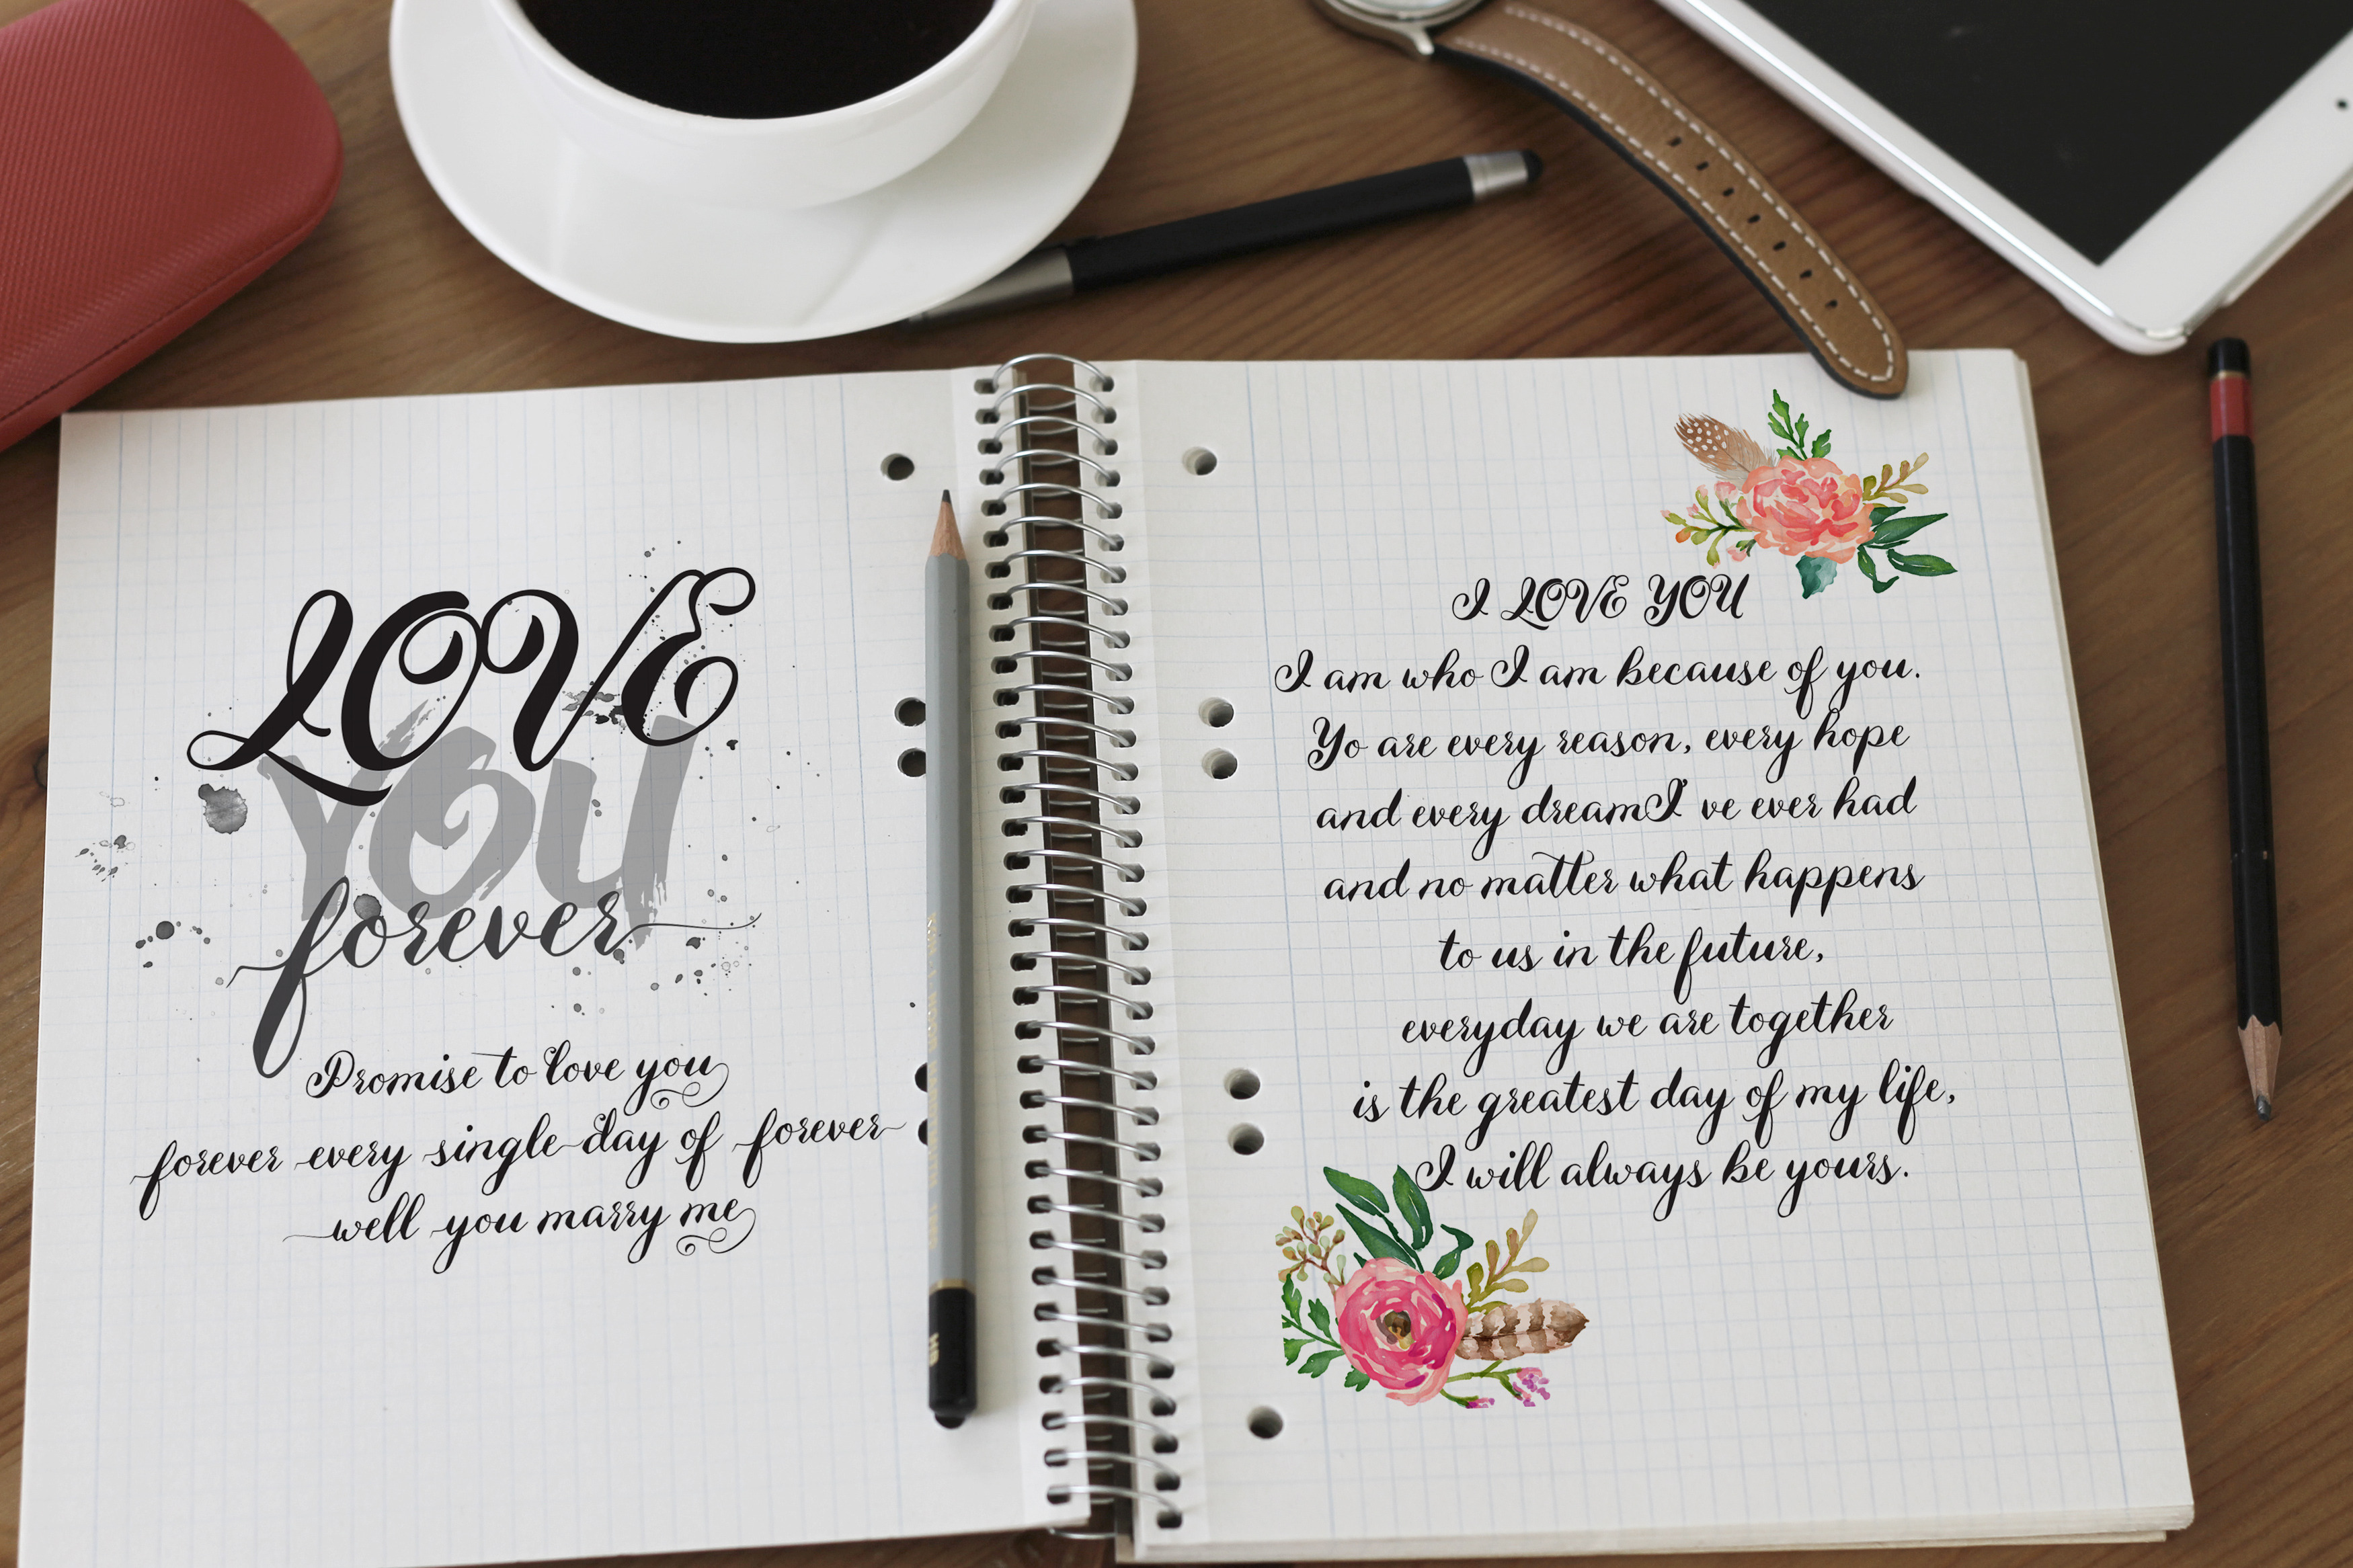 LOVE
YOU
forever
Promise to love you
forever every single day of forever
well you marry me
I LOVE YOU
I am who I am because of you.
Yo are every reason, every hope
and every dreamI' ve ever had
and no matter what happens
to us in the future,
everyday we are together
is the greatest day of my life,
I will always be yours.